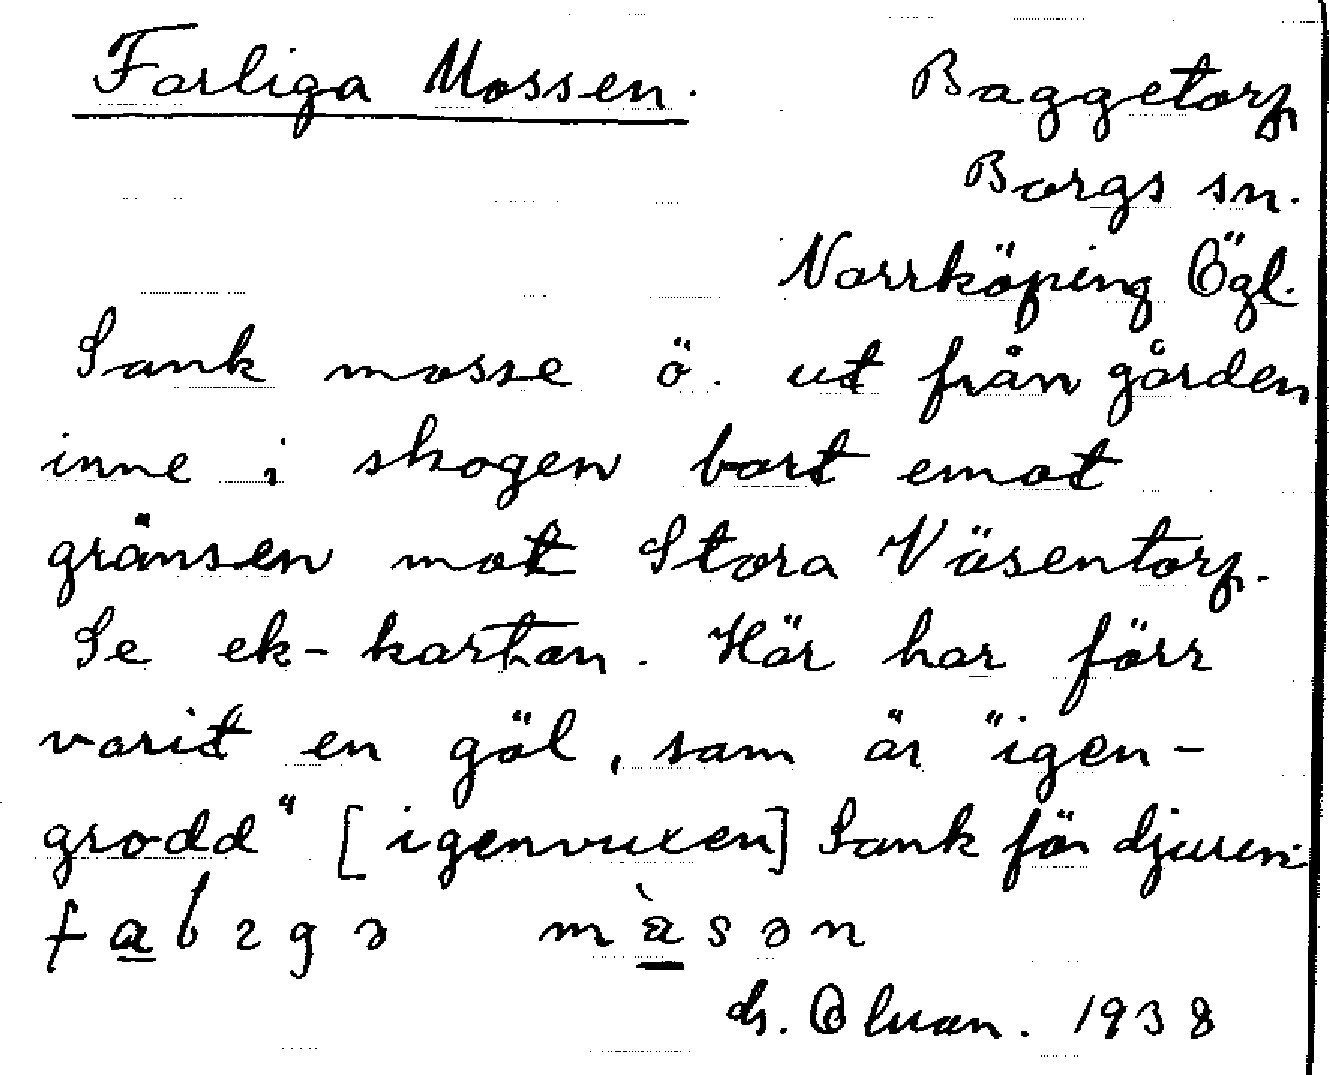 Farliga Mossen.
Baggetorp
Borgs sn.
Norrköping Ögl.
Sank mosse ö. ut från gården
inne i skogen bort emot
gränsen mot Stora Väsentorp.
Se ek-kartan. Här har förr
varit en göl, som är "igen-
grodd" [igenvuxen] Sank för djuren.
1938